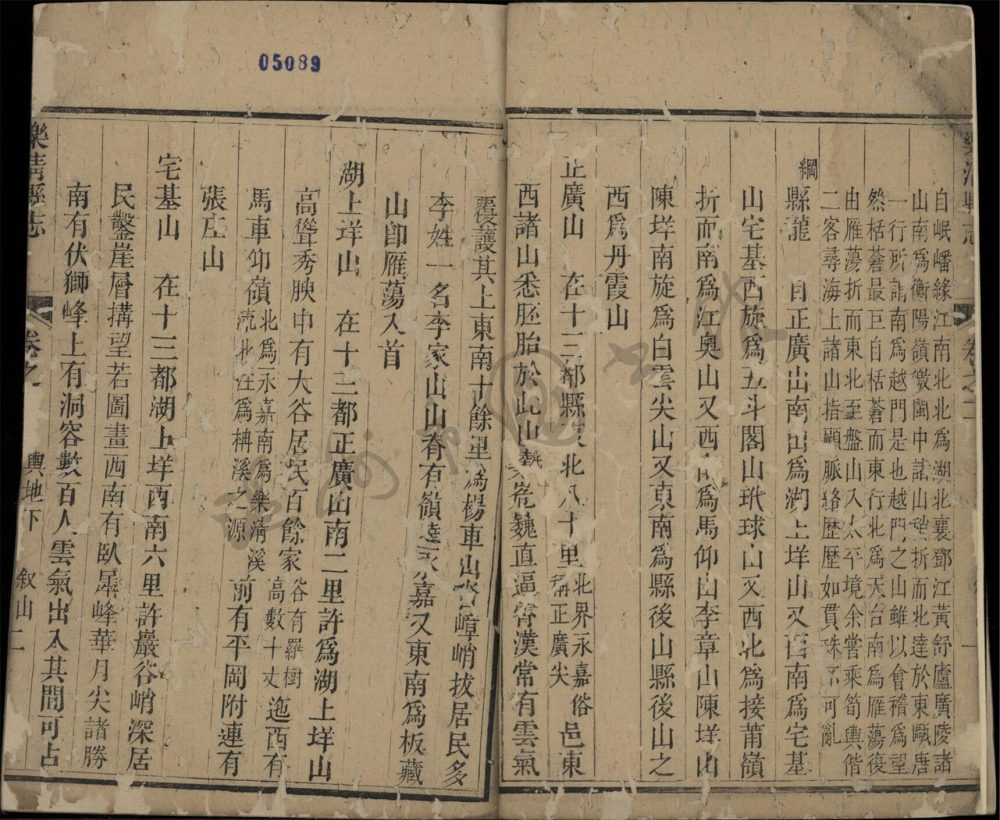 05089
樂清縣志
卷之二
自岷嶓緣江南北北爲湖北襄鄧江黃舒廬廣陵諸
山南爲衡陽嶺徼閩中諸山聳折而北達於東甌唐
一行所謂南爲越門是也越門之山雖以會稽爲望
然栝蒼最巨自栝蒼而東行北爲天台南爲雁蕩復
由雁蕩折而東北至盤山入太平境余嘗乘筍輿偕
二客尋海上諸山指顧脈絡歷歷如貫珠不可亂
綱
縣龍 自正廣出南出爲湖上垟山又西南爲宅基
山宅基西旋爲五斗閣山玳球山又西北爲接莆嶺
折而南爲江奧山又西南爲馬仰山李章山陳垟山
陳垟南旋爲白雲尖山又東南爲縣後山縣後山之
西爲丹霞山
正廣山 在十三都縣東北八十里北界永嘉俗稱正廣尖邑東
西諸山悉胚胎於此山勢巍直逼霄漢常有雲氣
覆護其上東南十餘里爲楊車山峭拔居民多
李姓一名李家山山脊有嶺達永嘉又東南爲板藏
山卽雁蕩入首
湖上垟山 在十三都正廣山南二里許爲湖上垟山
高聳秀腴中有大谷居民百餘家谷有羅樹高數十丈迤西有
馬車仰嶺北爲永嘉南爲樂清溪流北注爲楠溪之源前有平岡附連有
張庄山
宅基山 在十三都湖上垟西南六里許巖谷峭深居
民鑿崖層搆望若圖畫西南有臥屏峰華月尖諸勝
南有伏獅峰上有洞容數百人雲氣出入其間可占
樂清縣志
卷之
輿地下 敘山 二